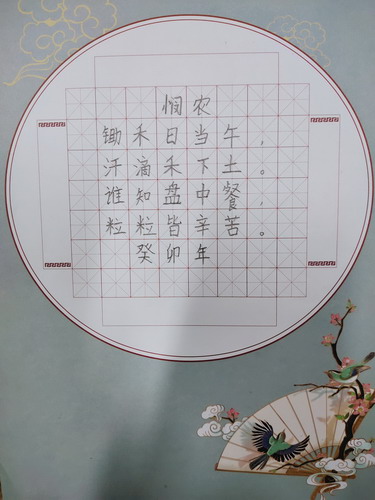 悯农
锄禾日当午，
汗滴禾下土。
谁知盘中餐，
粒粒皆辛苦。
癸卯年